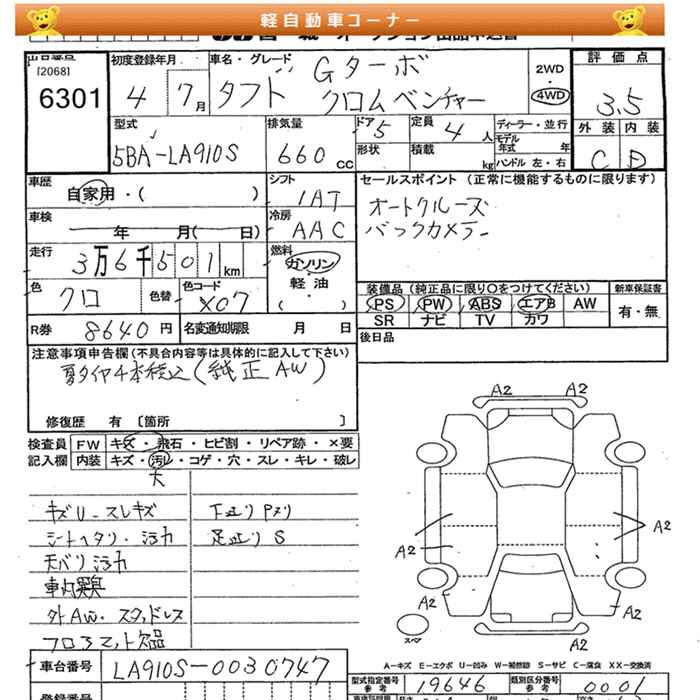 軽自動車コーナー
出品番号
[2068]
6301
初度登録年月
4 7月
車名・グレード
Gターボ
タフト クロムベンチャー
2WD
4WD
評価点
3.5
外装 内装
C D
型式
5BA-LA910S
排気量
660cc
ドア 5
形状
定員 4人
積載 kg
ディーラー・並行
モデル年式 年
ハンドル 左・右
車歴
自家用・( )
シフト
IAT
セールスポイント (正常に機能するものに限ります)
オートクルーズ
バックカメラー
車検
年 月( 日)
冷房
AAC
走行
3万6千501km
燃料
ガソリン・軽油・( )
色
クロ
色替
色コード
X07
装備品 (純正品に限り〇をつけてください)
PS PW ABS エアB AW
SR ナビ TV カワ
新車保証書
有・無
R券 8640円
名変通知期限 月 日
後日品
注意事項申告欄 (不具合内容等は具体的に記入して下さい)
夏タイヤ4本積込(純正AW)
修復歴 有 〔箇所 〕
検査員記入欄
FW キズ・飛石・ヒビ割・リペア跡・×要
内装 キズ・汚レ・コゲ・穴・スレ・キレ・破レ
大
キズU-スレキズ
シートヘタリ・汚力
天バリ汚力
車内異臭
外AW・スタッドレス
フロアマット欠品
下廻りPヌリ
足廻りS
A2
A2
A2
A2
A2
A2
A2
スペア
A-キズ E-エクボ U-凹み W-補修跡 S-サビ C-腐食 XX-交換済
車台番号
LA910S-0030747
型式指定番号
参考
19646
類別区分番号
参考
0001
登録番号